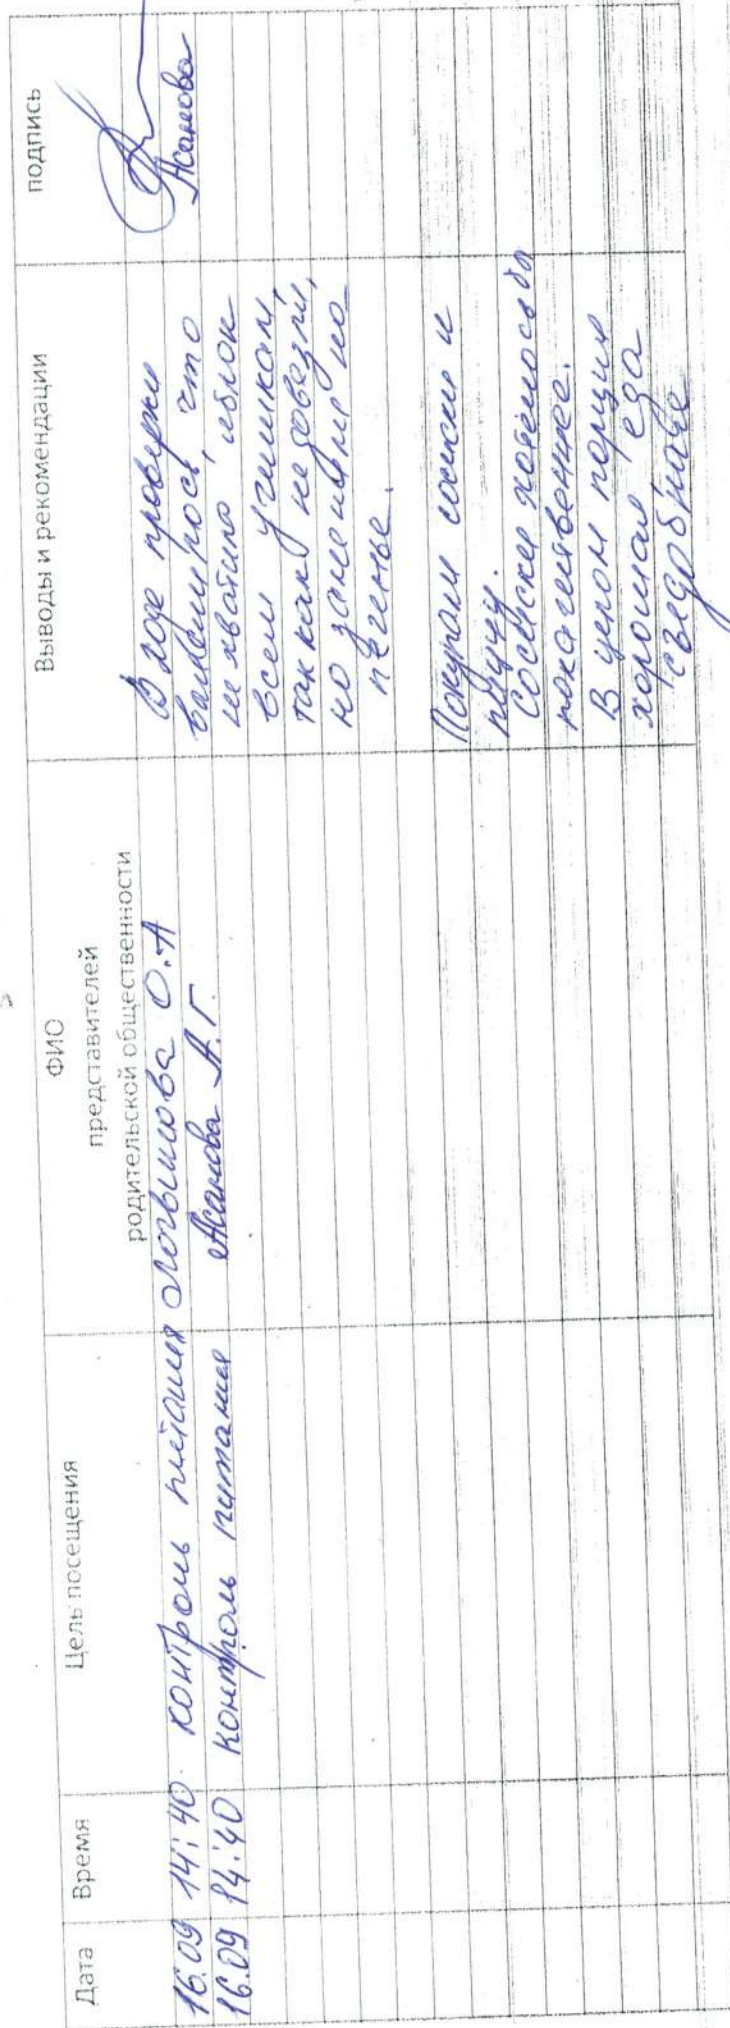 Дата Время Цель посещения ФИО представителей родительской общественности Выводы и рекомендации подпись
16.09 14:40 контроль питания О.А В ходе проверки
16.09 14:40 контроль питания Асанова А.Г. выяснилось, что Асанова
не хватило яблок
всем ученикам,
так как не довезли,
но заменили на
печенье.
Покупали сосиски и
пиццу.
Сосиски хотелось бы
покачественнее.
В целом порция
хорошая еда
съедобная